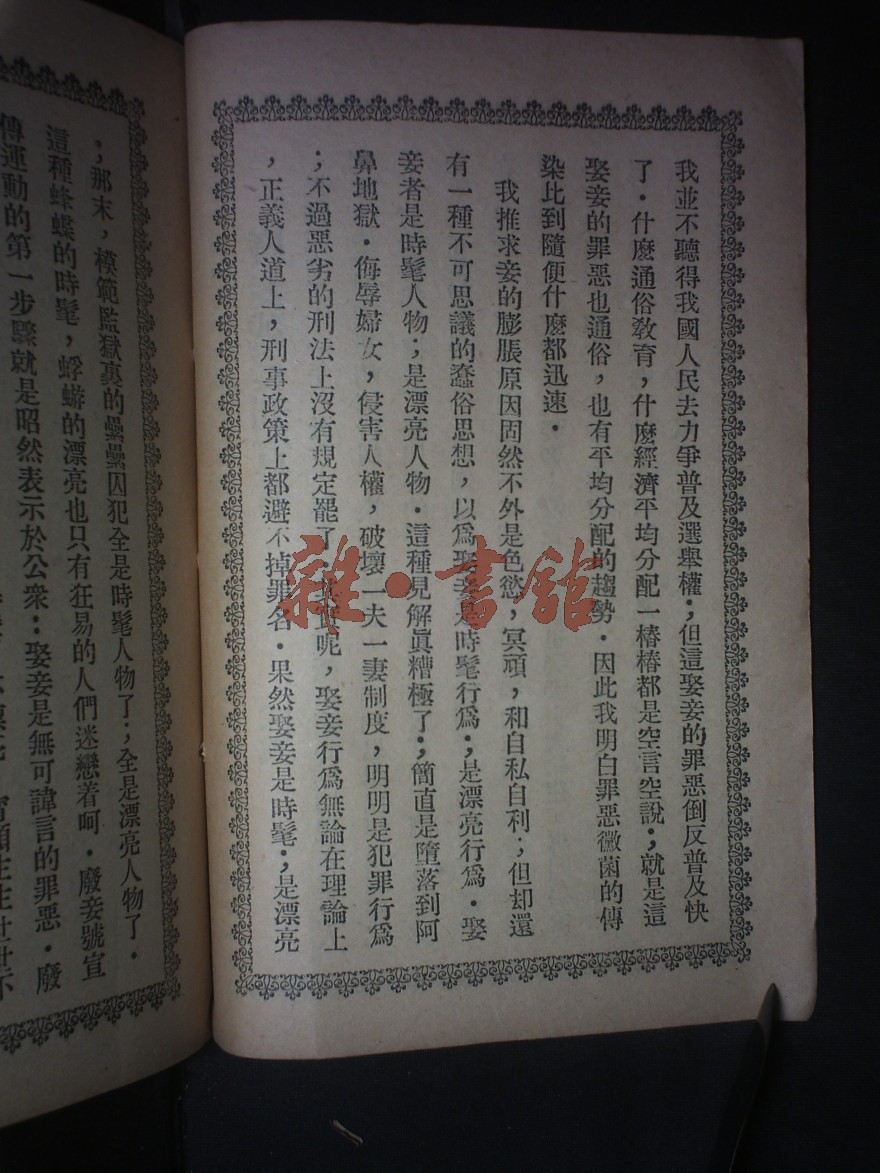 我並不聽得我國人民去力爭普及選舉權；但這娶妾的罪惡倒反普及快
了．什麼通俗敎育，什麼經濟平均分配一樁樁都是空言空說；就是這
娶妾的罪惡也通俗，也有平均分配的趨勢．因此我明白罪惡黴菌的傳
染比到隨便什麼都迅速．
我推求妾的膨脹原因固然不外是色慾，冥頑，和自私自利；但却還
有一種不可思議的蠢俗思想，以爲娶妾是時髦行爲；是漂亮行爲．娶
妾者是時髦人物；是漂亮人物．這種見解眞糟極了；簡直是墮落到阿
鼻地獄．侮辱婦女，侵害人權，破壞一夫一妻制度，明明是犯罪行爲
；不過惡劣的刑法上沒有規定罷了．實呢，娶妾行爲無論在理論上
，正義人道上，刑事政策上都避不掉罪名．果然娶妾是時髦；是漂亮
；那末，模範監獄裏的纍纍囚犯全是時髦人物了；全是漂亮人物了．
這種蜂蝶的時髦，蜉蝣的漂亮也只有狂易的人們迷戀着呵．廢妾號宣
傳運動的第一步驟就是昭然表示於公衆：娶妾是無可諱言的罪惡．廢
雜·書館